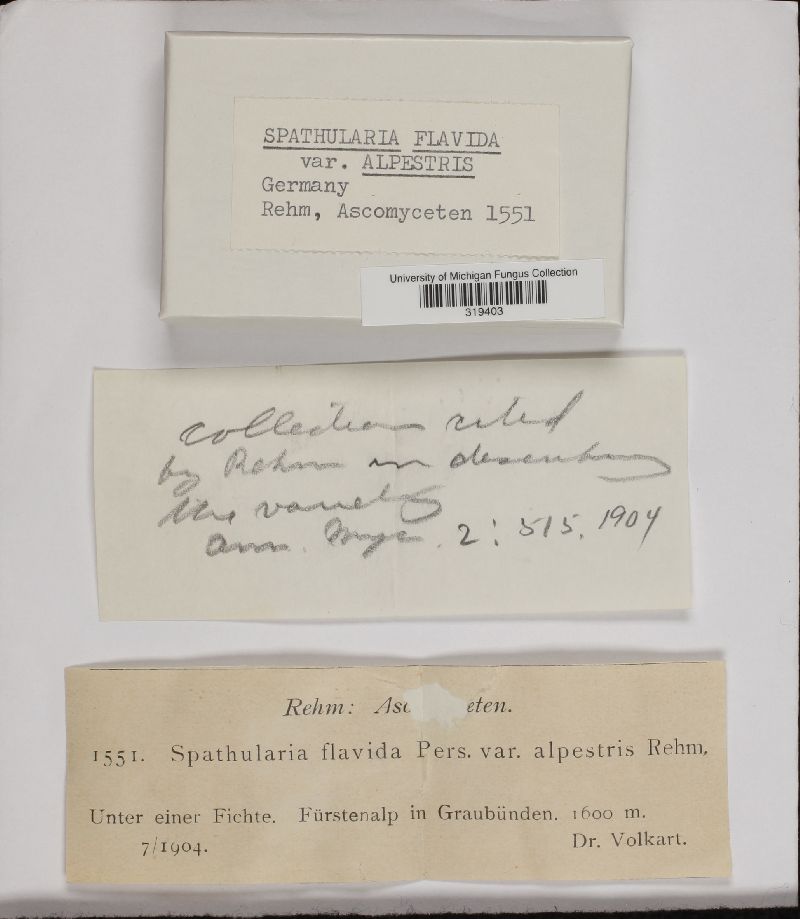 SPATHULARIA FLAVIDA
var. ALPESTRIS
Germany
Rehm, Ascomyceten 1551
University of Michigan Fungus Collection
319403
collection cited
by Rehm in describing
the variety
Ann. Myc. 2: 515. 1904
Rehm: Asc eten.
1551. Spathularia flavida Pers. var. alpestris Rehm.
Unter einer Fichte. Fürstenalp in Graubünden. 1600 m.
7/1904. Dr. Volkart.